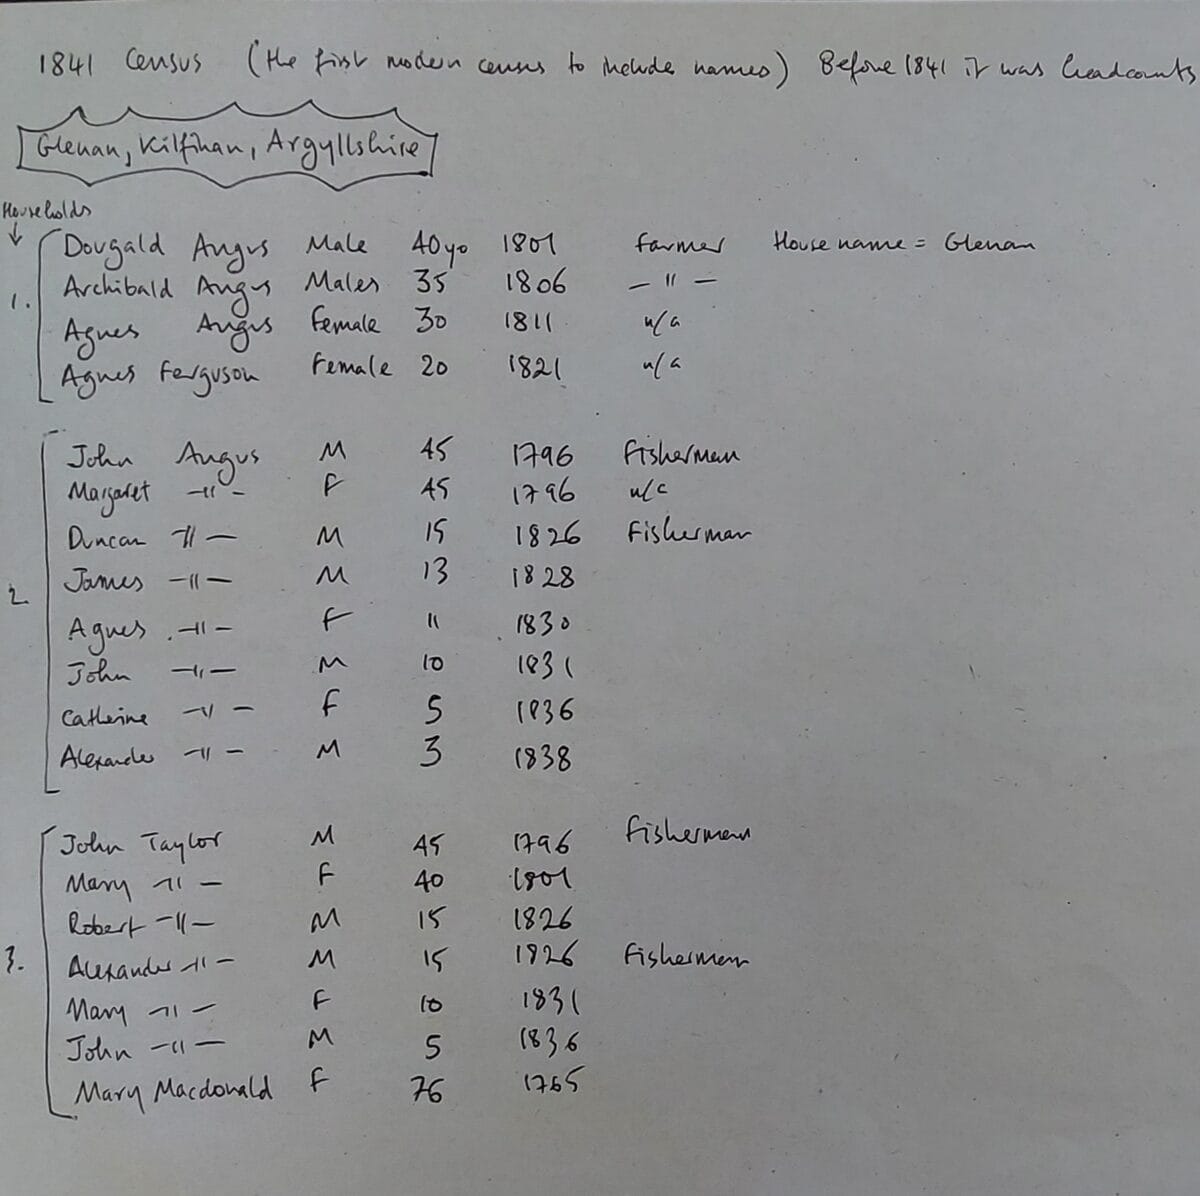 1841 Census (the first modern census to include names) Before 1841 it was headcounts
Glenan, Kilfinan, Argyllshire
Households
↓
1.
Dougald Angus Male 40yo 1801 farmer House name = Glenan
Archibald Angus Males 35 1806 — " —
Agnes Angus Female 30 1811 n/a
Agnes Ferguson Female 20 1821 n/a
2.
John Angus M 45 1796 Fisherman
Margaret —"— F 45 1796 n/a
Duncan —"— M 15 1826 Fisherman
James —"— M 13 1828
Agnes —"— F 11 1830
John —"— M 10 1831
Catherine —"— F 5 1836
Alexander —"— M 3 1838
3.
John Taylor M 45 1796 Fisherman
Mary —"— F 40 1801
Robert —"— M 15 1826
Alexander —"— M 15 1826 Fisherman
Mary —"— F 10 1831
John —"— M 5 1836
Mary Macdonald F 76 1765